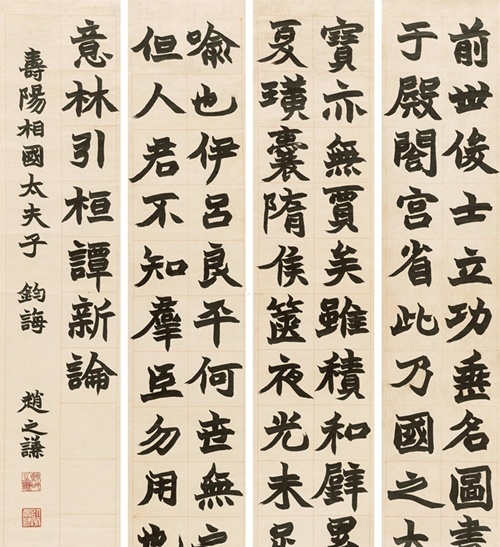 前世俊士立功垂名圖書
于殿閣宮省此乃國之大
寶亦無賈矣雖積和璧累
夏璜囊隋侯篋夜光未足
喻也伊呂良平何世無之
但人君不知羣臣勿用也
意林引桓譚新論
壽陽相國太夫子 鈞誨 趙之謙